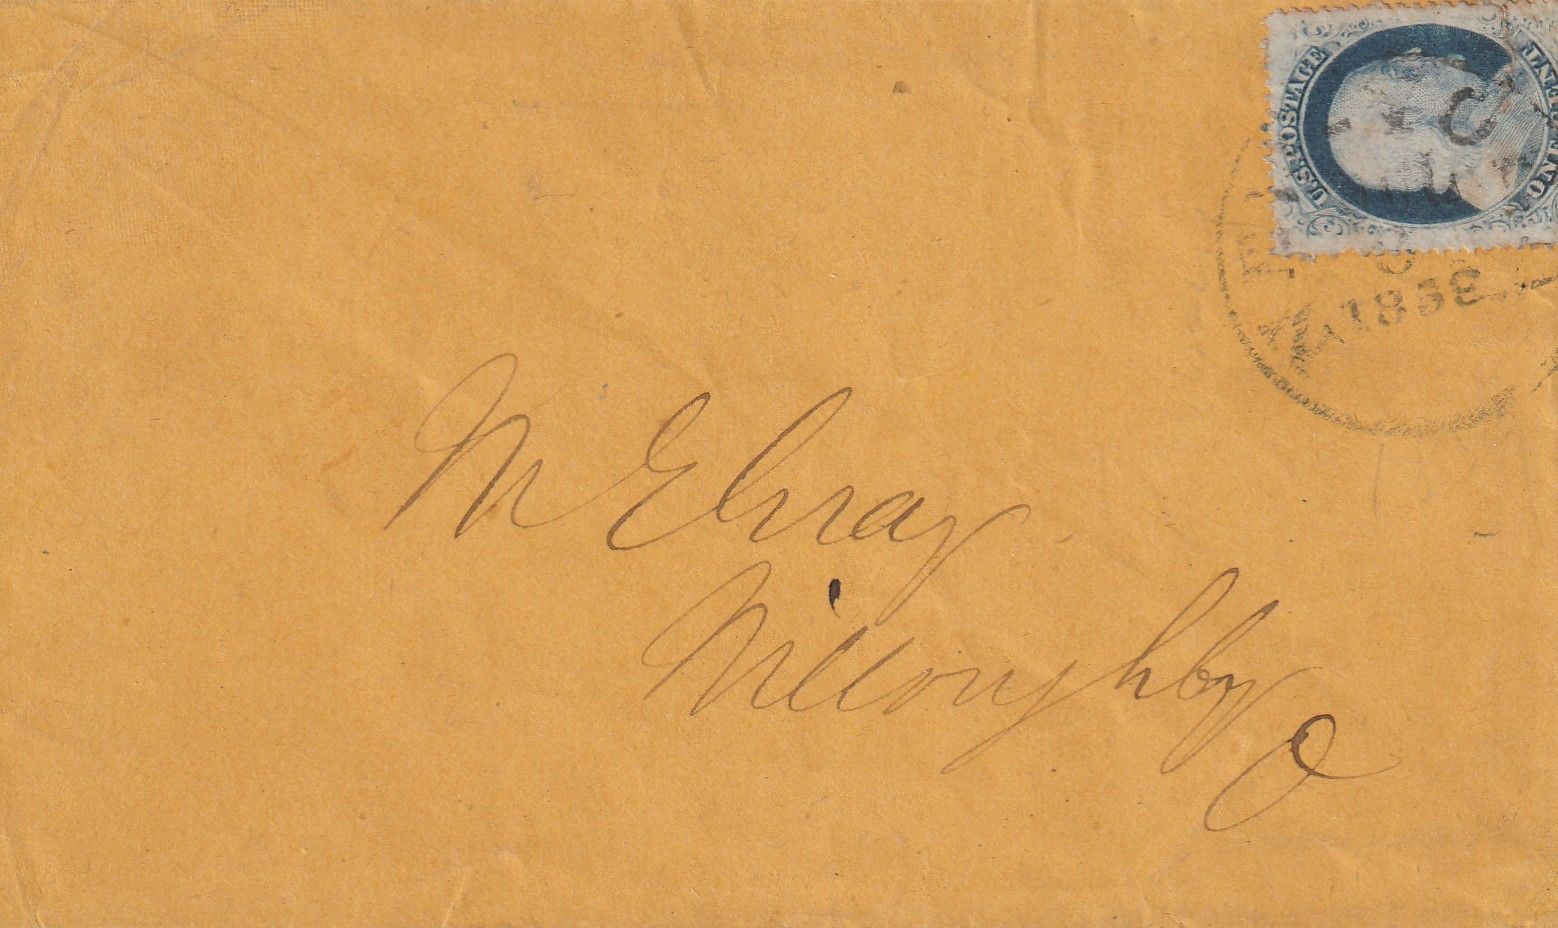 U.S. POSTAGE
ONE CENT
1858
M Elwray
Willoughby
O